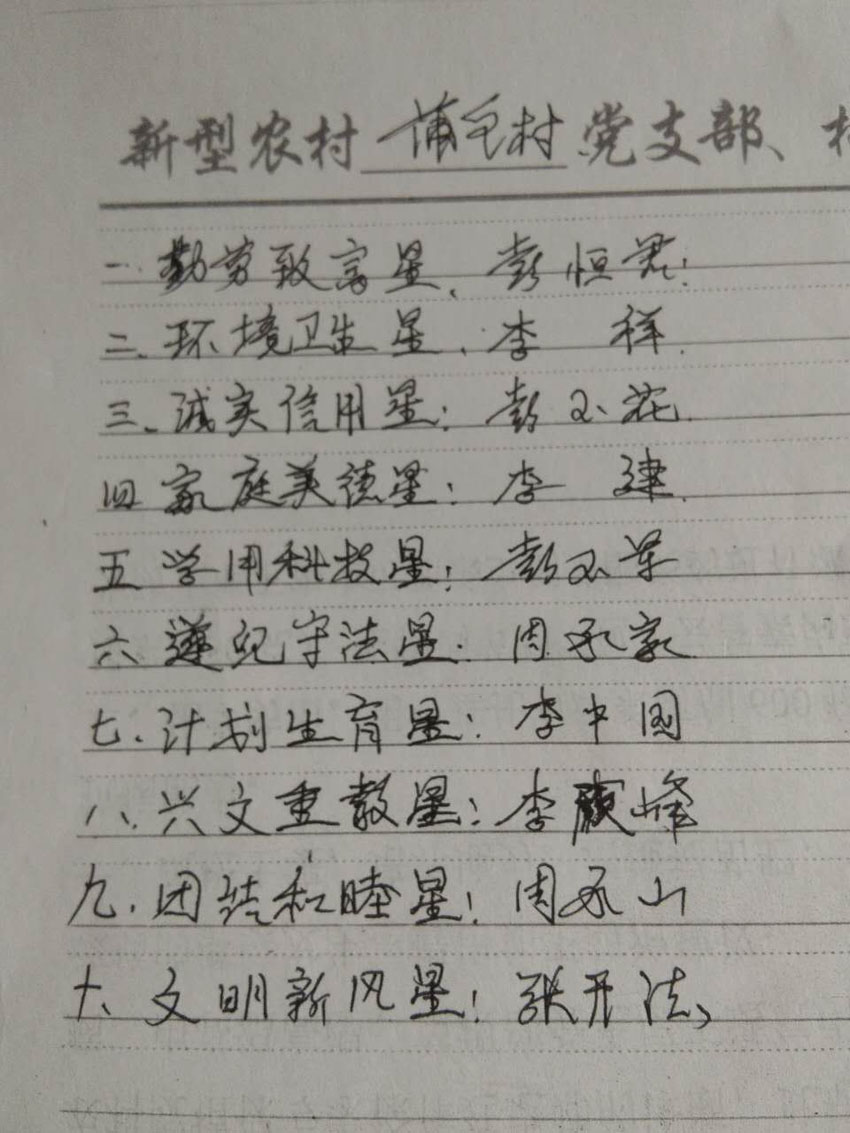 新型农村蒲仝村党支部、村
一、勤劳致富星、彭恒君:
二、环境卫生星、李 祥.
三、诚实信用星:彭玉花.
四家庭美德星:李 建.
五学用科技星:彭玉军
六遵纪守法星:周永家
七、计划生育星:李中国
八、兴文重教星:李 峰
九、团结和睦星:周永山
十、文明新风星:张开法、